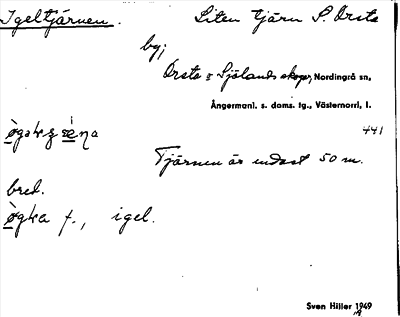 Igeltjärnen. Liten tjärn S. Orsta
by;
Orsta o Sjölands skogar, Nordingrå sn,
Ångermanl. s. doms. tg., Västernorrl. l.
441
Tjärnen är endast 50 m.
bred.
f., igel.
Sven Hiller 1949